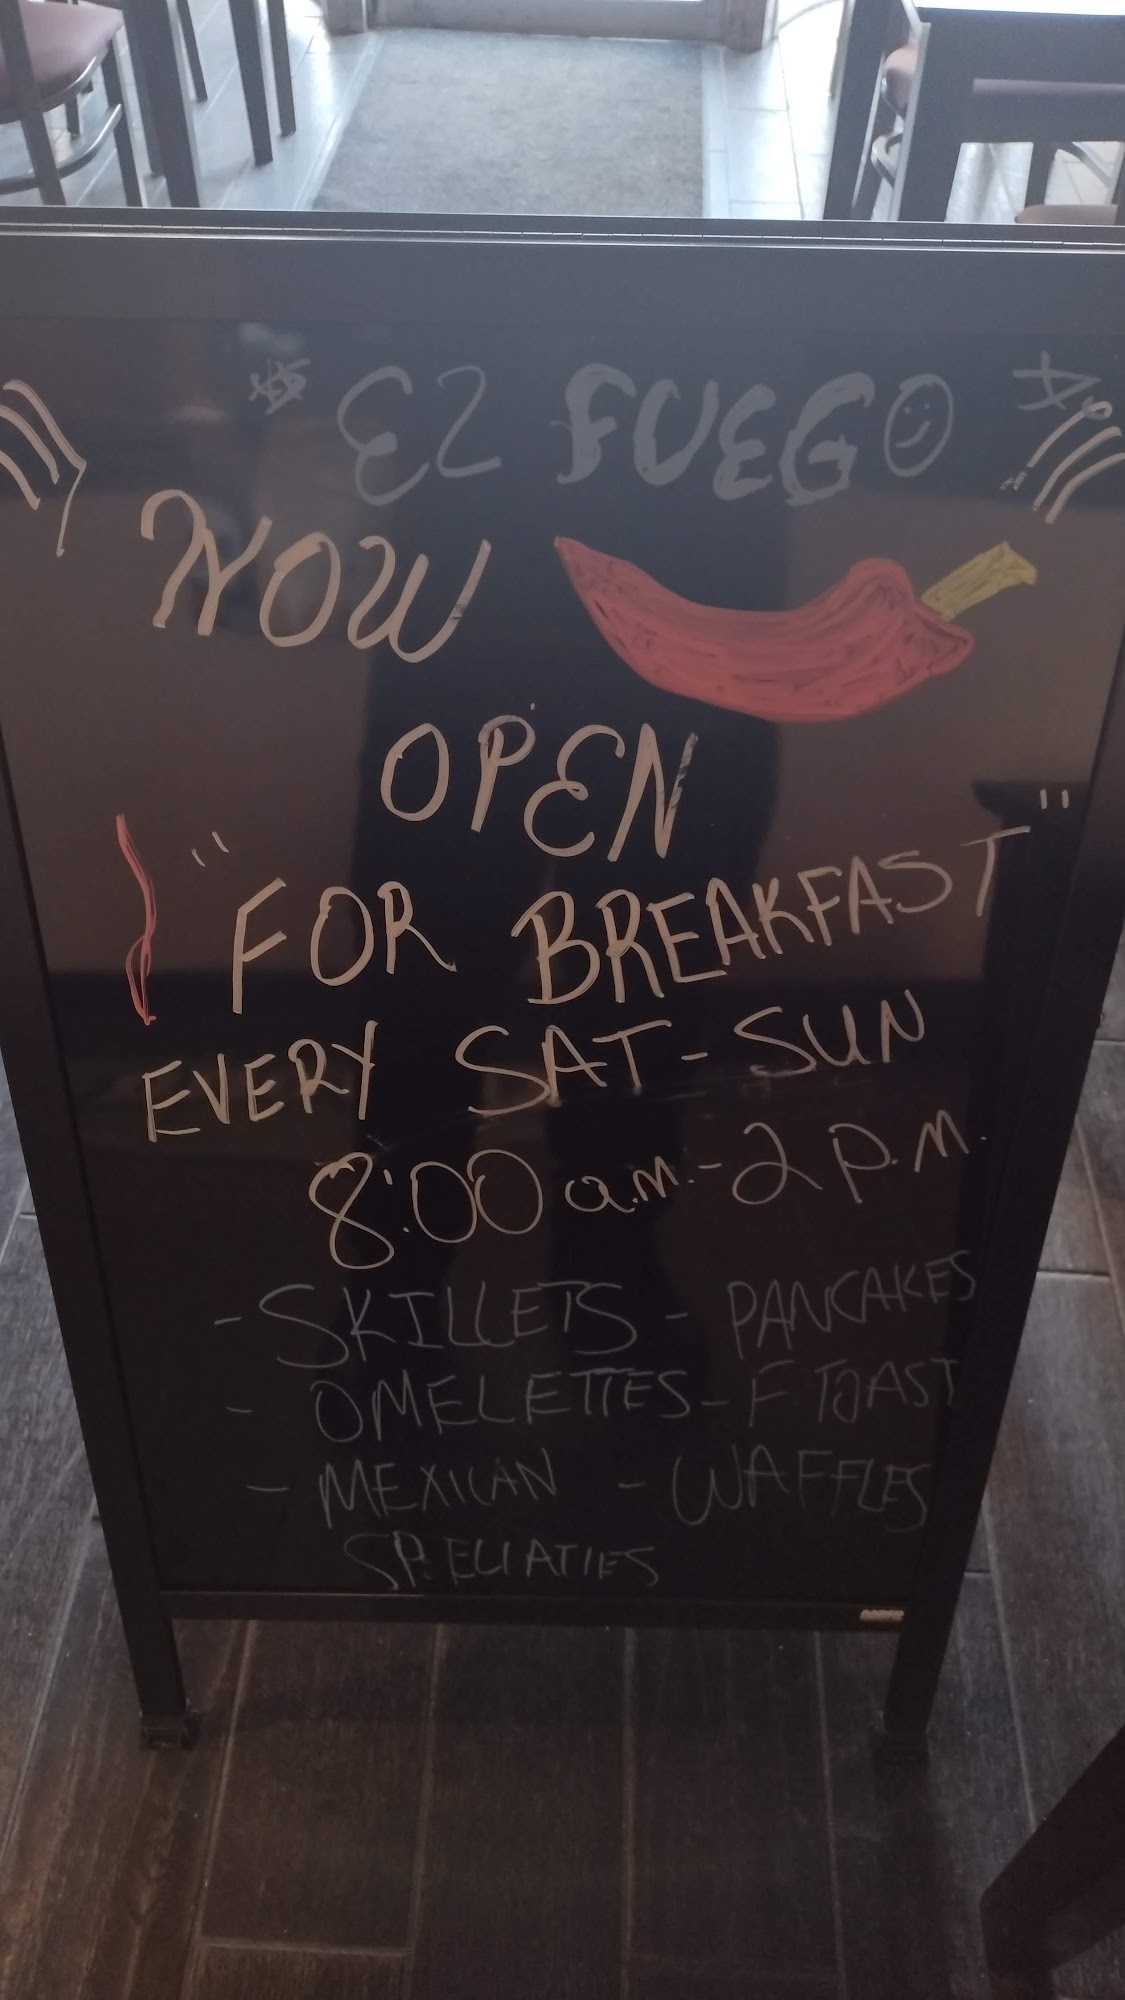 EL FUEGO
NOW
OPEN
"FOR BREAKFAST"
EVERY SAT-SUN
8:00 a.m.-2 p.m.
-SKILLETS - PANCAKES
- OMELETTES - F. TOAST
- MEXICAN - WAFFLES
SPECIATIES